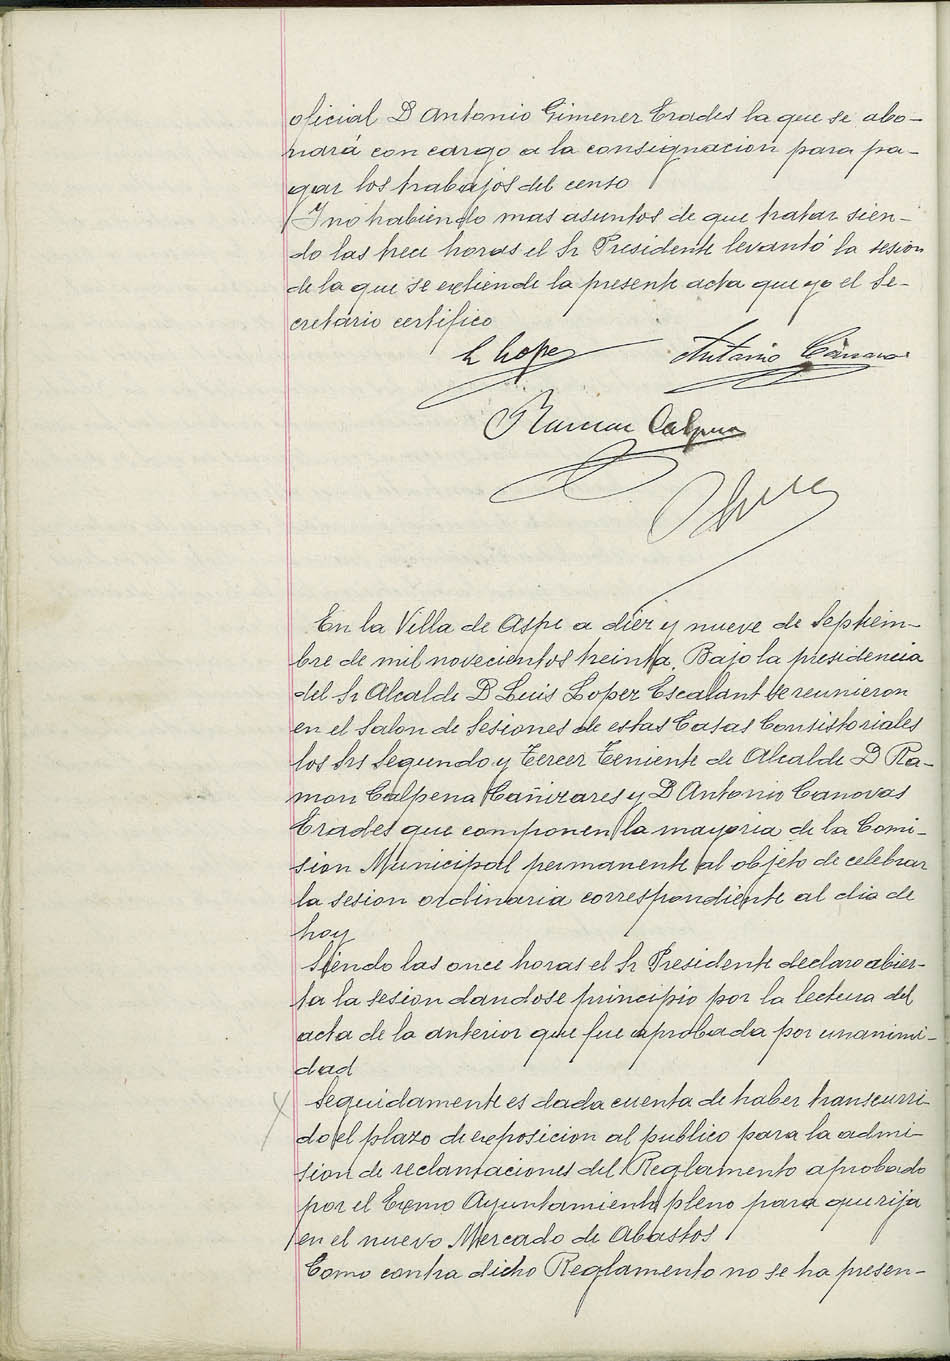 oficial D Antonio Gimenez Erades la que se abo-
nará con cargo a la consignacion para pa-
gar los trabajos del censo
Y no habiendo mas asuntos de que tratar sien-
do las trece horas el Sr Presidente levantó la sesion
de la que se extiende la presente acta que yo el Se-
cretario certifico
L Lopez Antonio Cánovas
Ramon Calpena
En la Villa de Aspe a diez y nueve de Septiem-
bre de mil novecientos treinta. Bajo la presidencia
del Sr Alcalde D Luis Lopez Escalant se reunieron
en el Salon de Sesiones de estas Casas Consistoriales
los Srs Segundo y Tercer Teniente de Alcalde D Ra-
mon Calpena Cañizares y D Antonio Canovas
Erades que componen la mayoria de la Comi-
sion Municipal permanente al objeto de celebrar
la sesion ordinaria correspondiente al dia de
hoy
Siendo las once horas el Sr Presidente declaro abier-
ta la sesion dandose principio por la lectura del
acta de la anterior que fue aprobada por unanimi-
dad
Seguidamente es dada cuenta de haber transcurri-
do el plazo de exposicion al publico para la admi-
sion de reclamaciones del Reglamento aprobado
por el Excmo Ayuntamiento pleno para que rija
en el nuevo Mercado de Abastos
Como contra dicho Reglamento no se ha presen-